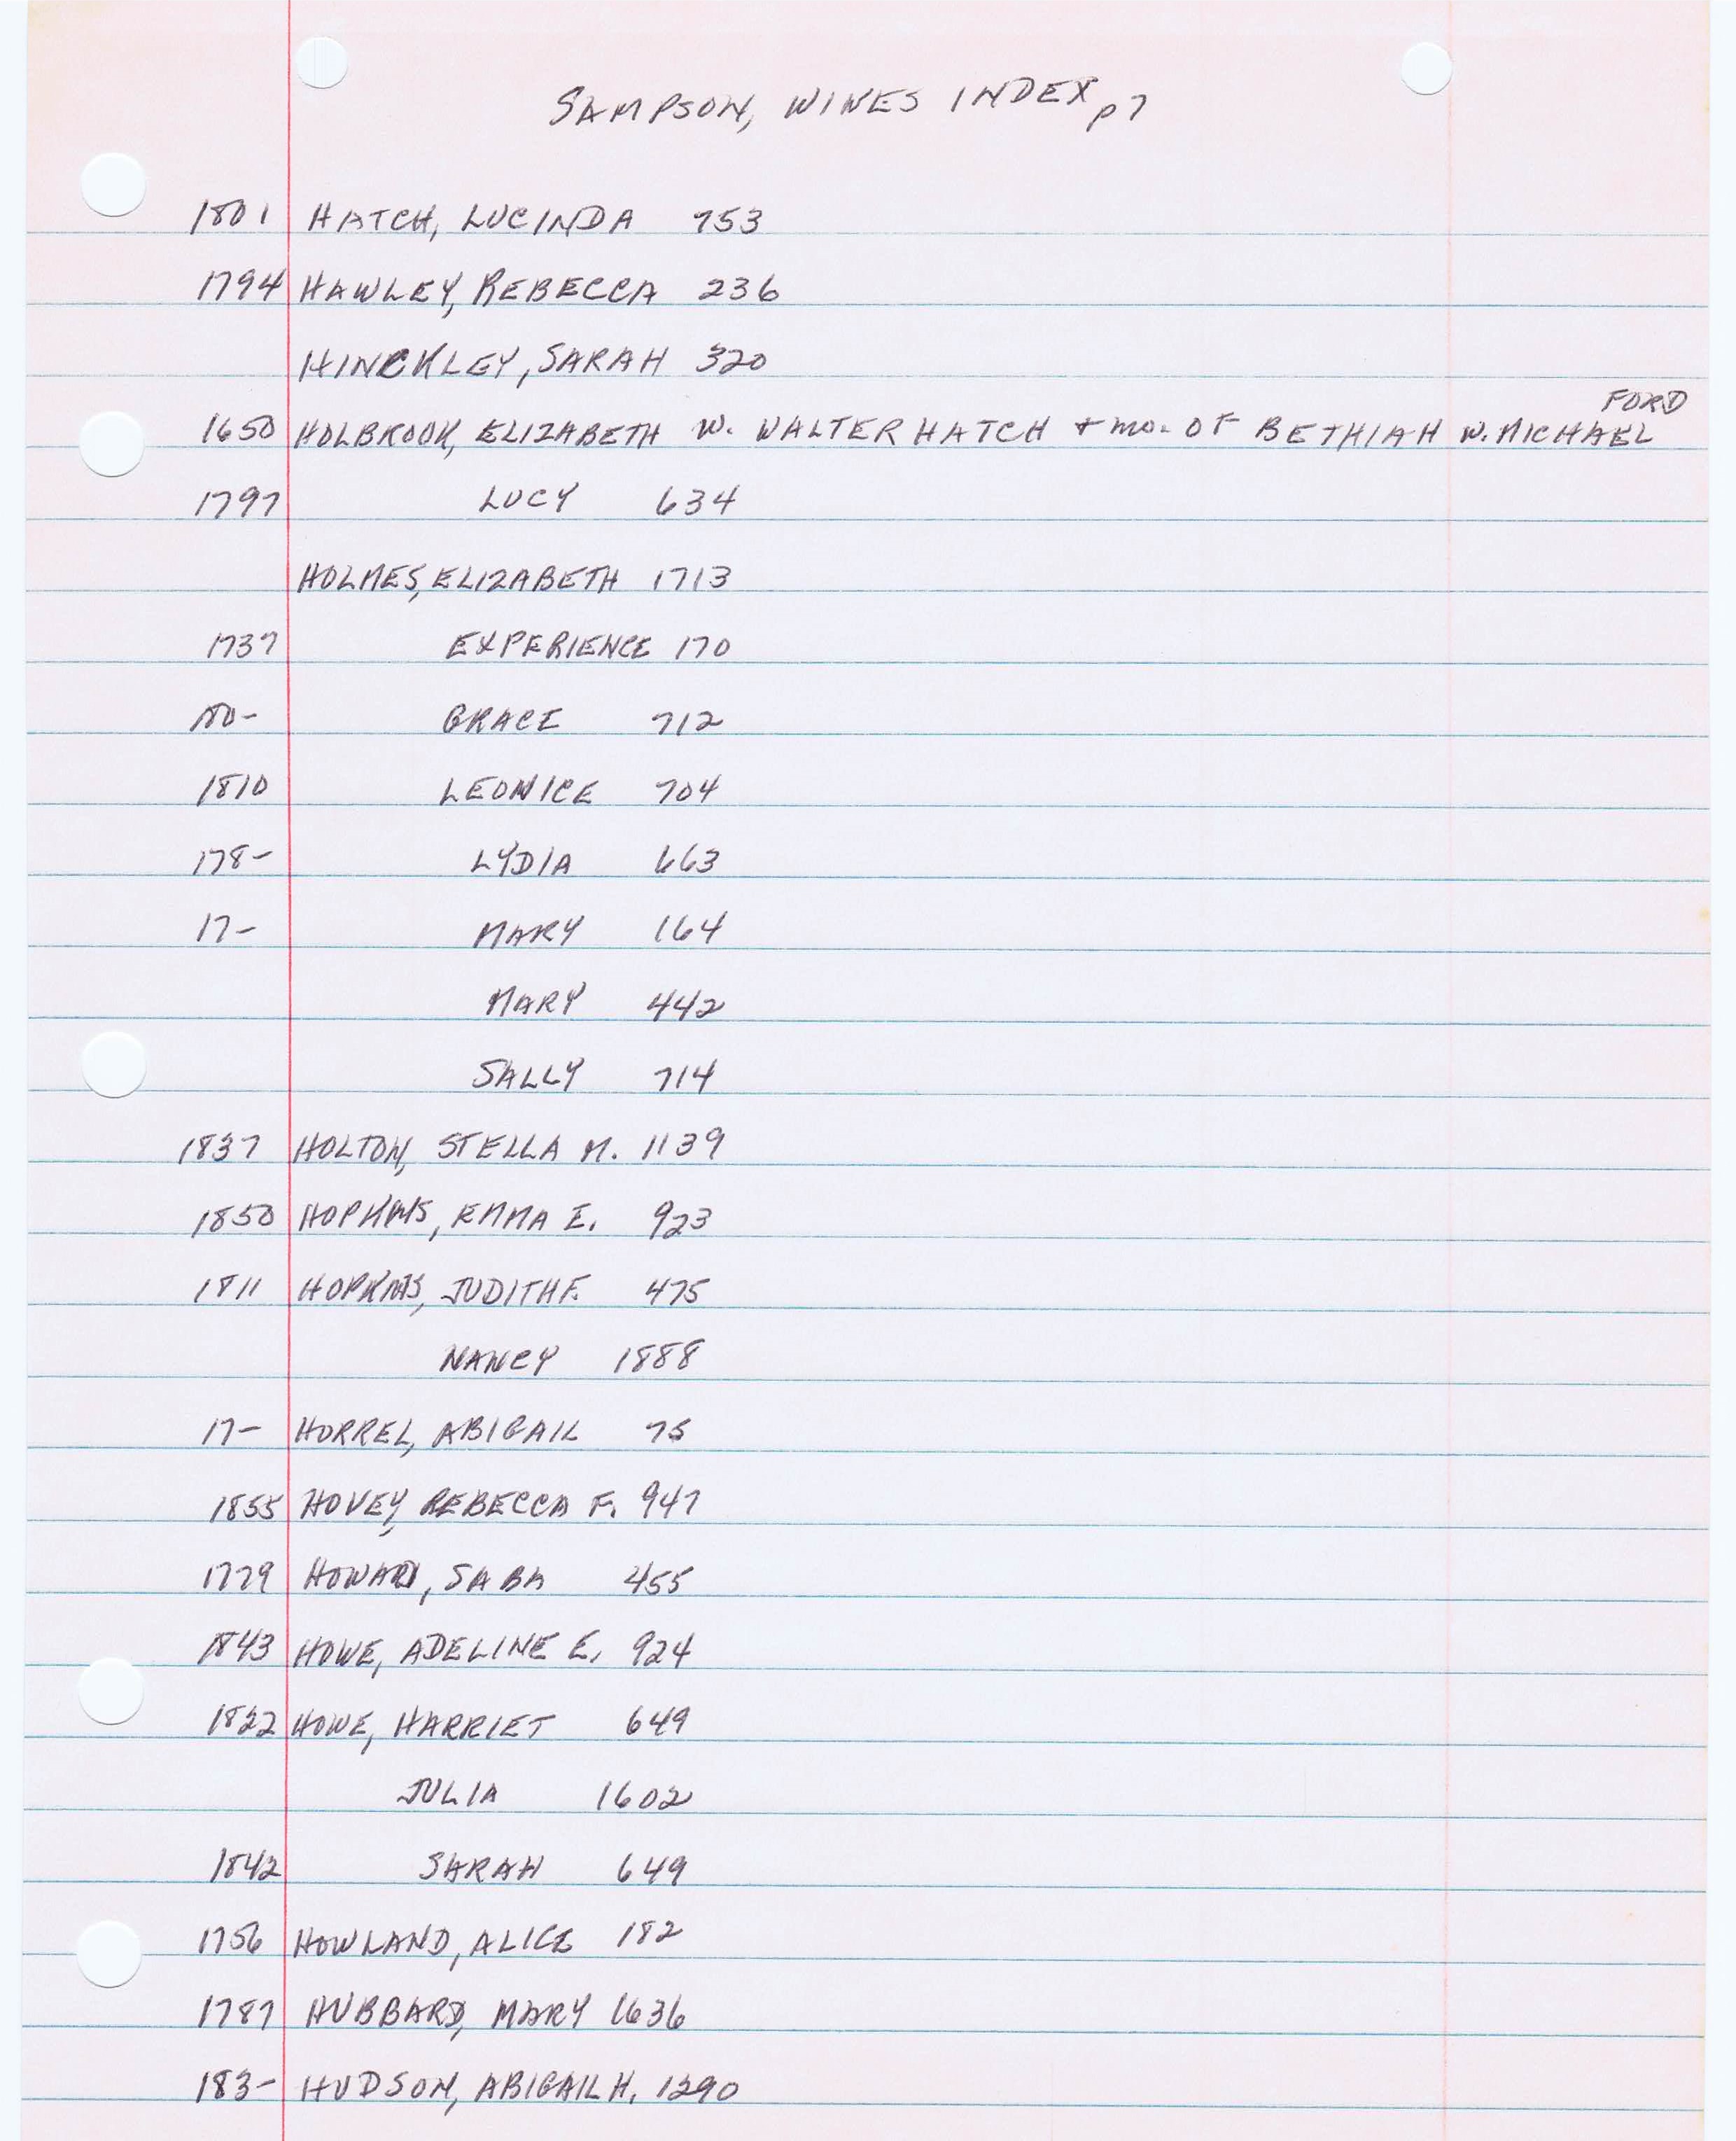 SAMPSON, WIVES INDEX p7
1801 HATCH, LUCINDA 753
1794 HAWLEY, REBECCA 236
HINCKLEY, SARAH 320
FORD
1650 HOLBROOK, ELIZABETH W. WALTER HATCH + mo. OF BETHIAH W. MICHAEL
1797 LUCY 634
HOLMES, ELIZABETH 1713
1737 EXPERIENCE 170
180- GRACE 712
1810 LEONICE 704
178- LYDIA 663
17- MARY 164
MARY 442
SALLY 714
1837 HOLTON, STELLA M. 1139
1850 HOPKINS, EMMA E. 923
1811 HOPKINS, JUDITH F. 475
NANCY 1888
17- HORREL, ABIGAIL 75
1855 HOVEY, REBECCA F. 947
1779 HOWARD, SABA 455
1843 HOWE, ADELINE E. 924
1822 HOWE, HARRIET 649
JULIA 1602
1842 SARAH 649
1756 HOWLAND, ALICE 182
1787 HUBBARD, MARY 1636
183- HUDSON, ABIGAIL H. 1290